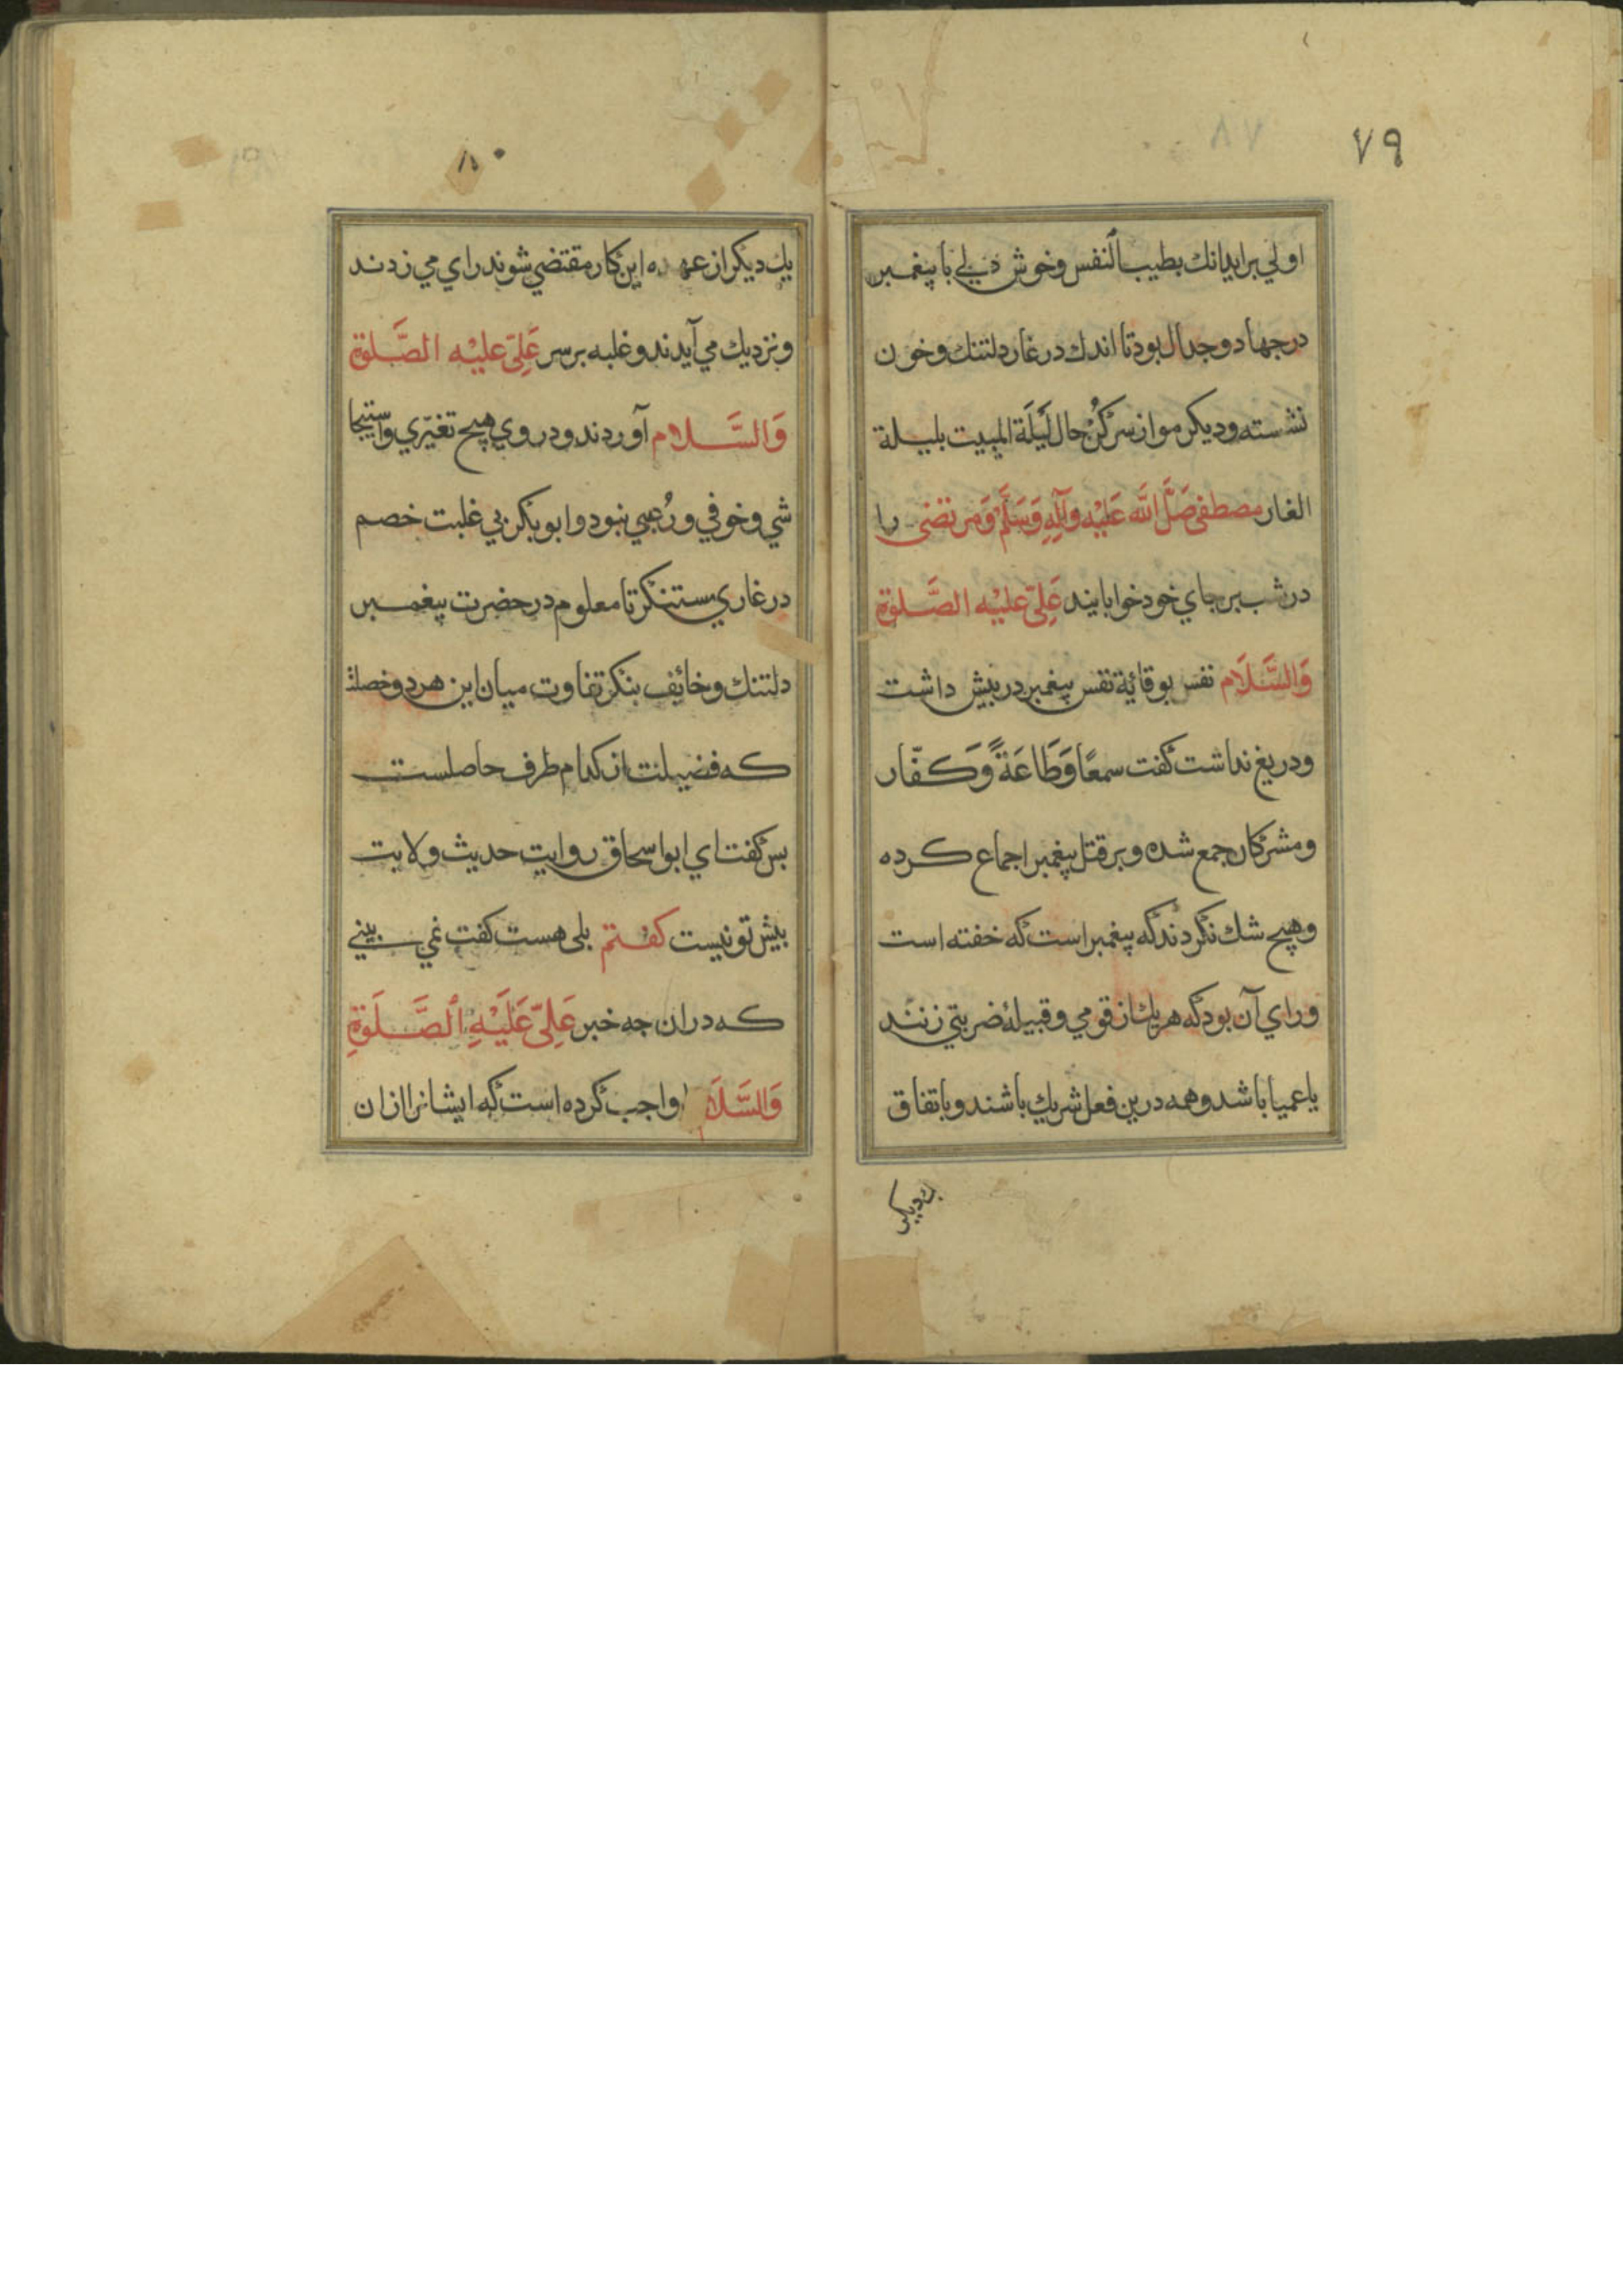 ٧٩
اولي برايدانك بطيب النفس وخوش دلي با پيغمبر
درجهاد وجدال بود تا اندك در غار دلتنك وخون
نشسته وديكر موازسر كن حال ليلة المبيت بليلة
الغار مصطفى صَلَّ الله عَلَيْه وَآلِهِ وَسَلَّمْ وَمرتضى را
در شب بر جاي خود خوابانيد عَلِىّ عليْه الصَّلوة
وَالسَّلَام نفس بوقائة نفس پيغمبر در پيش داشت
ودريغ نداشت كفت سمعًا وَطَاعَةً وَكفّار
ومشركان جمع شده وبر قتل پيغمبر اجماع كرده
وهيچ شك نكردند كه پيغمبر است كه خفته است
وراي آن بود كه هر يك از قومي وقبيلۀ ضربتي زنند
يا عميا باشد وهمه درين فعل شريك باشند وباتفاق
يك ديكر
٨٠
يك ديكر از عهده اين كار مقتضي شوند راي مي زدند
ونزديك مي آيدند وغلبه بر سر عَلِىّ عليْه الصَّلوة
وَالسَّلام آوردند ودر وي هيچ تغيّري واستيحا
شي وخوفي ورُعبي نبود وابوبكر بي غلبت خصم
در غاري مستنكر تا معلوم در حضرت پيغمبر
دلتنك وخائف بنكر تفاوت ميان اين هر دو خصلت
كه فضيلت از كدام طرف حاصلست
پس كفت اي ابواسحاق روايت حديث ولايت
پيش تو نيست كفتم بلى هست كفت نمي بيني
كه دران چه خبر عَلِىّ عَلَيْهِ الصَّلَوةِ
وَالسَّلَا واجب كرده است كه ايشانرا ازان